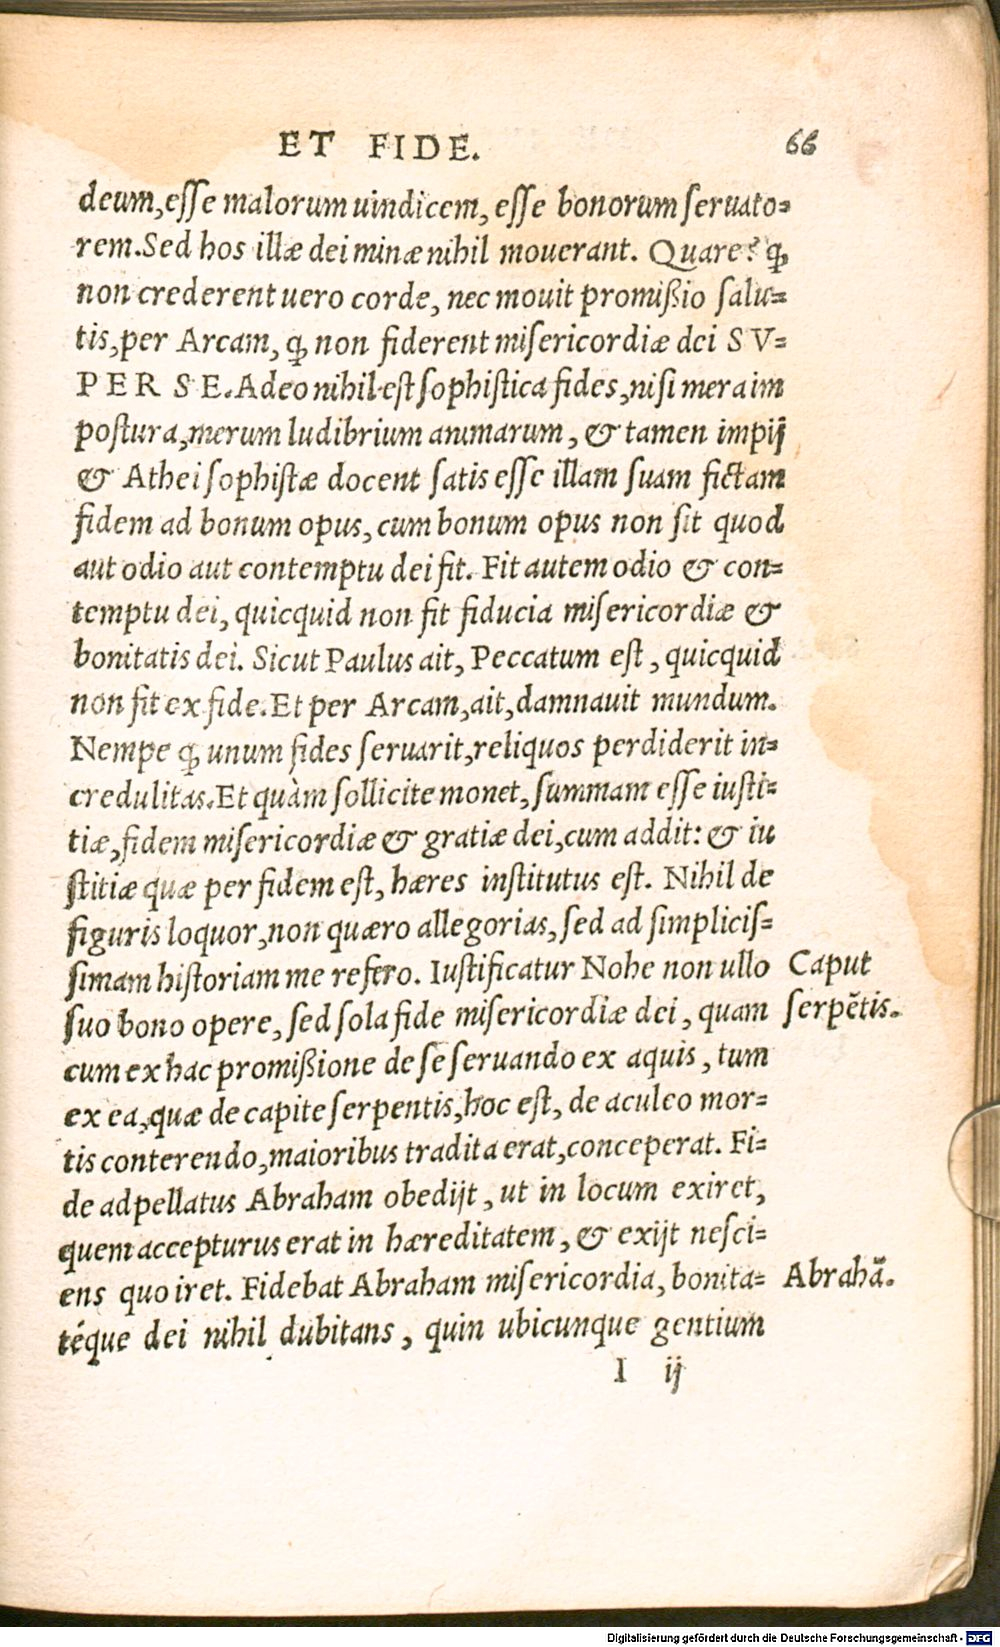 ET FIDE. 66
deum, esse malorum uindicem, esse bonorum seruato-
rem. Sed hos illæ dei minæ nihil mouerant. Quare? ꝗ
non crederent uero corde, nec mouit promißio salu-
tis, per Arcam, ꝗ non fiderent misericordiæ dei SV-
PER SE. Adeo nihil est sophistica fides, nisi mera im
postura, merum ludibrium animarum, & tamen impij
& Athei sophistæ docent satis esse illam suam fictam
fidem ad bonum opus, cum bonum opus non sit quod
aut odio aut contemptu dei fit. Fit autem odio & con-
temptu dei, quicquid non fit fiducia misericordiæ &
bonitatis dei. Sicut Paulus ait, Peccatum est, quicquid
non fit ex fide. Et per Arcam, ait, damnauit mundum.
Nempe ꝗ unum fides seruarit, reliquos perdiderit in-
credulitas. Et quàm sollicite monet, summam esse iusti-
tiæ, fidem misericordiæ & gratiæ dei, cum addit: & iu
stitiæ quæ per fidem est, hæres institutus est. Nihil de
figuris loquor, non quæro allegorias, sed ad simplicis-
simam historiam me refero. Iustificatur Nohe non ullo Caput
suo bono opere, sed sola fide misericordiæ dei, quam serpẽtis.
cum ex hac promißione de se seruando ex aquis, tum
ex ea, quæ de capite serpentis, hoc est, de aculeo mor-
tis conterendo, maioribus tradita erat, conceperat. Fi-
de adpellatus Abraham obedijt, ut in locum exiret,
quem accepturus erat in hæreditatem, & exijt nesci-
ens quo iret. Fidebat Abraham misericordia, bonita- Abrahã.
téque dei nihil dubitans, quin ubicunque gentium
I ij
Digitalisierung gefördert durch die Deutsche Forschungsgemeinschaft - DFG